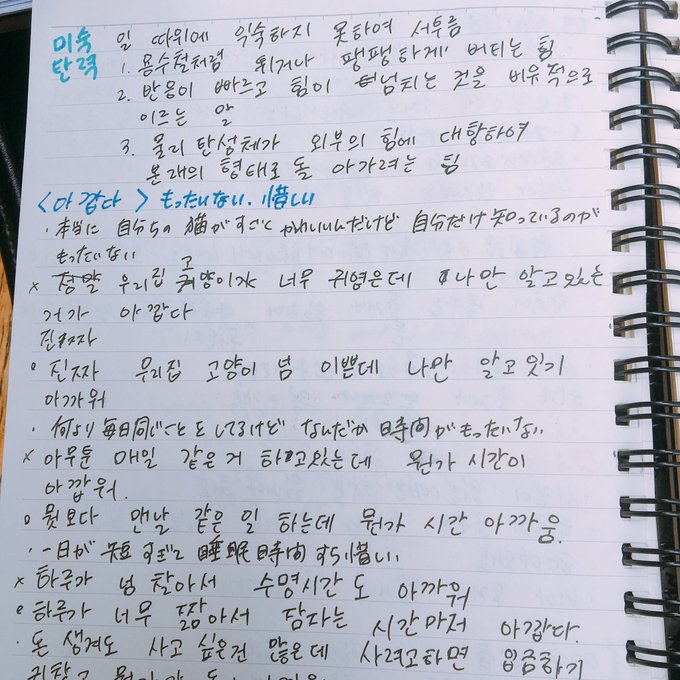 미숙 일 따위에 익숙하지 못하여 서투름
탄력 1. 용수철처럼 튀거나 팽팽하게 버티는 힘
2. 반응이 빠르고 힘이 넘치는 것을 비유적으로
이르는 말
3. 물리 탄성체가 외부의 힘에 대항하여
본래의 형태로 돌아가려는 힘
<아깝다> もったいない. 惜しい
・本当に 自分ちの 猫がすごく かわいいんだけど 自分だけ知っているのが
もったいない
× 정말 우리집 고양이가 너무 귀엽은데 나만 알고있는
거가 아깝다
진짜
○ 진짜 우리집 고양이 넘 이쁜데 나만 알고잇기
아까워
・何より毎日同じことをしてるけど なんだか 時間がもったいない
× 아무튼 매일 같은 거 하고있는데 뭔가 시간이
아깝워.
○ 뭣보다 맨날 같은 일 하는데 뭔가 시간 아까움.
・一日が 短すぎて 睡眠時間すら惜しい.
× 하루가 넘 찮아서 수명시간도 아까워
○ 하루가 너무 짧아서 잠자는 시간마저 아깝다.
・돈 생겨도 사고 싶은건 많은데 사려고하면 입금하기